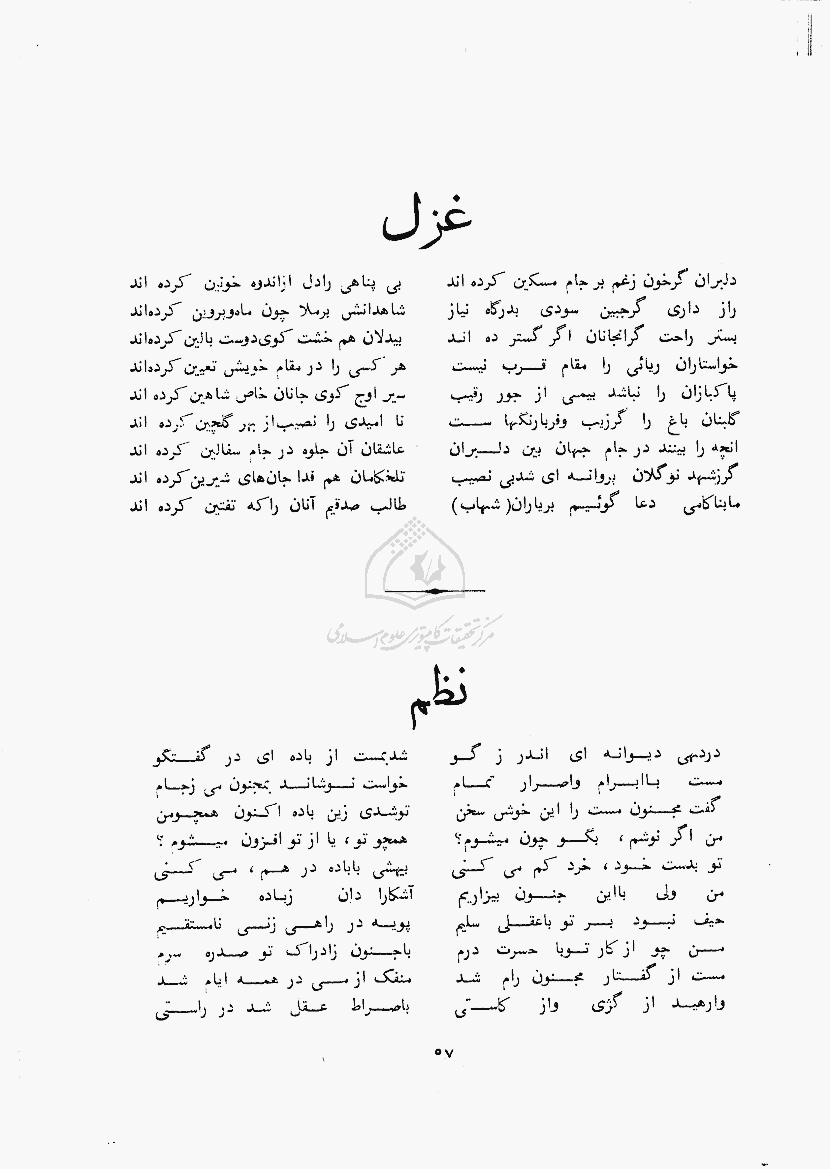 غزل
دلبران گرخون زغم بر جام مسکین کرده اند بی پناهی رادل ازاندوه خونین کرده اند
راز داری گرجبین سودی بدرگاه نیاز شاهدانش برملا چون ماه‌وپروین کرده‌اند
بستر راحت گرانجانان اگر گستر ده اند بیدلان هم خشت کوی‌دوست بالین کرده‌اند
خواستاران ریائی را مقام قرب نیست هر کسی را در مقام خویش تعیین کرده‌اند
پاکبازان را نباشد بیمی از جور رقیب سیر اوج کوی جانان خاص شاهین کرده اند
گلبنان باغ را گرزیب وفربارنگها ست نا امیدی را نصیب‌از بهر گلچین کرده اند
انچه را بینند در جام جهان بین دلبران عاشقان آن جلوه در جام سفالین کرده اند
گرزشهد نوگلان پروانه ای شدبی نصیب تلخکامان هم فدا جان‌های شیرین کرده اند
مابناکامی دعا گوئیم بریاران(شهاب) طالب صدقیم آنان راکه تفتین کرده اند
مرکز تحقیقات کامپیوتری علوم اسلامی
نظم
دردهی دیوانه ای اندر ز گو شدبمست از باده ای در گفتگو
مست باابرام واصرار تمام خواست نوشاند بمجنون می زجام
گفت مجنون مست را این خوش سخن نوشدی زین باده اکنون همچومن
من اگر نوشم ، بگو چون میشوم؟ همچو تو ، یا از تو افزون میشوم ؟
تو بدست خود ، خرد کم می کنی بیهشی باباده در هم ، می کنی
من ولی بااین جنون بیزاریم آشکارا دان زباده خواریم
حیف نبود بر تو باعقلی سلیم پویه در راهی زنی نامستقیم
من چو از کار توبا حسرت درم باجنون زادراک تو صدره سرم
مست از گفتار مجنون رام شد منفک از می در همه ایام شد
وارهید از کژی واز کاستی باصراط عقل شد در راستی
۵۷